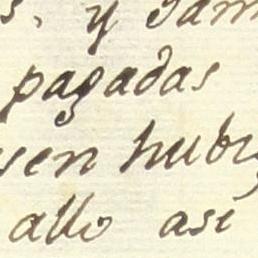 s, y tam
pagadas
sen hubi
allo así